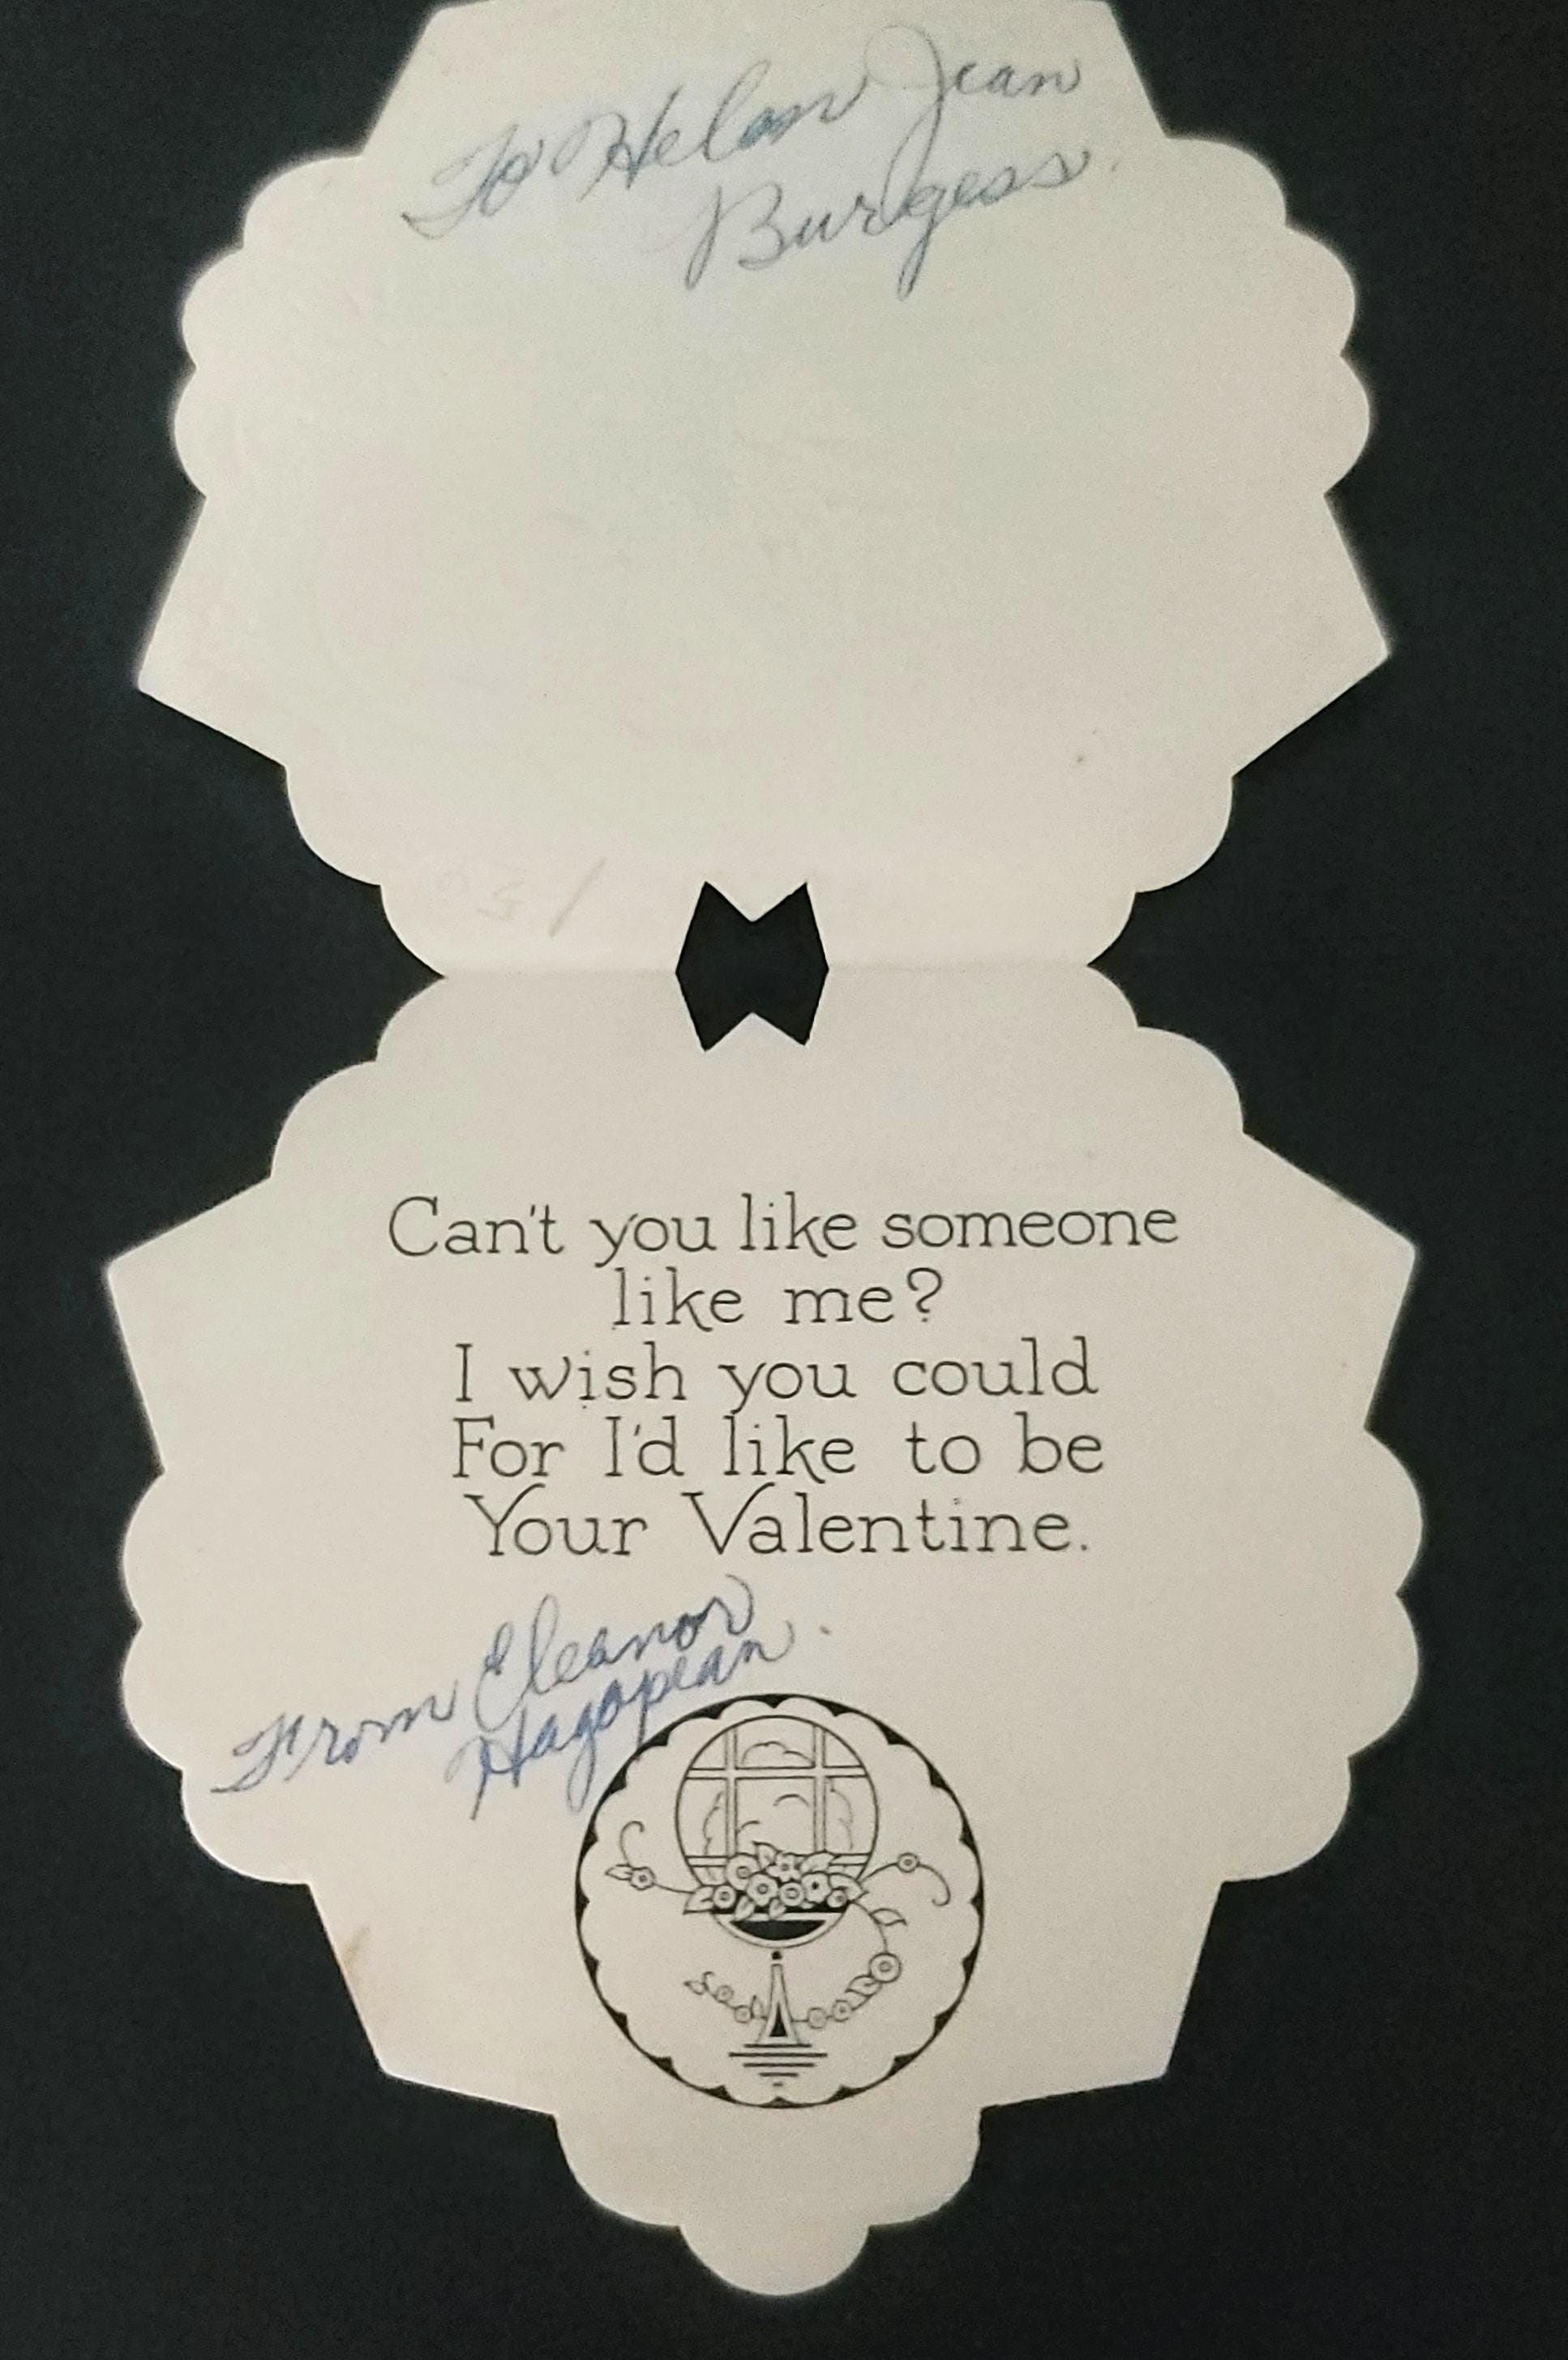 To Helan Jean
Burgess.
Can't you like someone
like me?
I wish you could
For I'd like to be
Your Valentine.
From Eleanor
Hagopean.